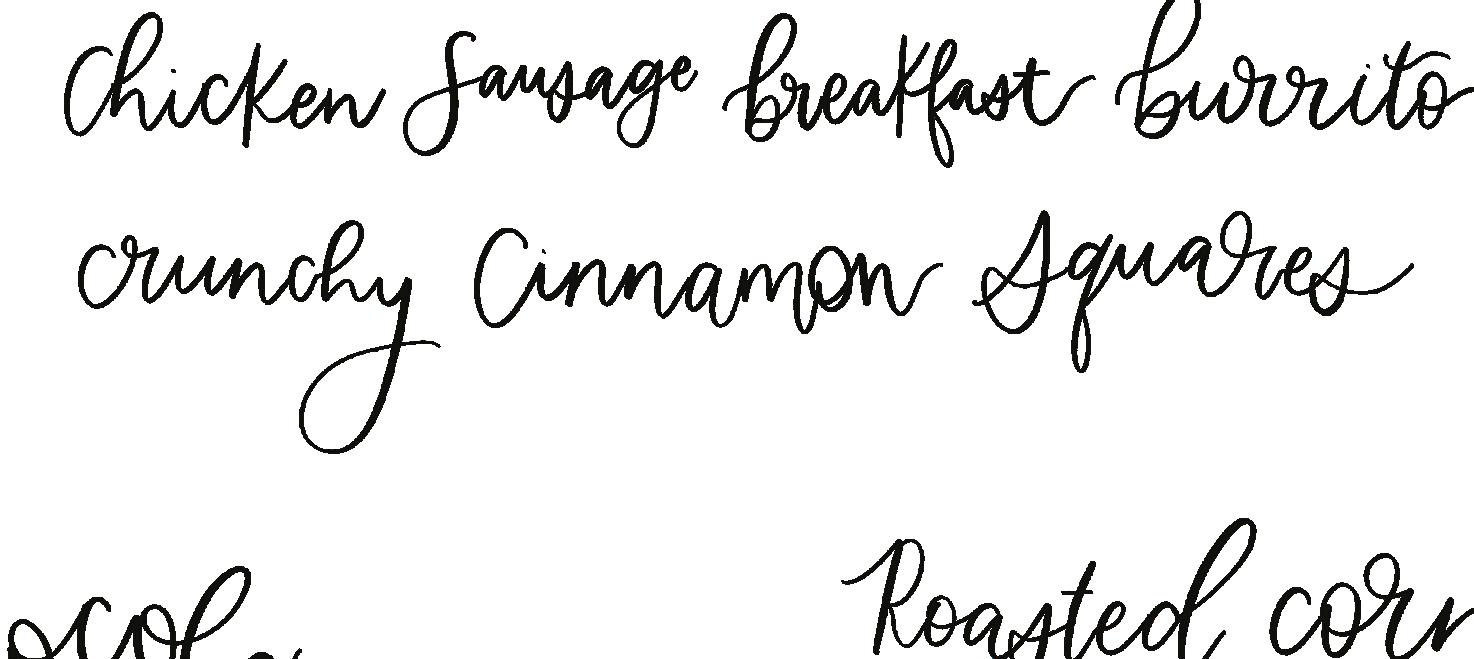 Chicken Sausage breakfast burrito
crunchy Cinnamon Squares
Roasted corn